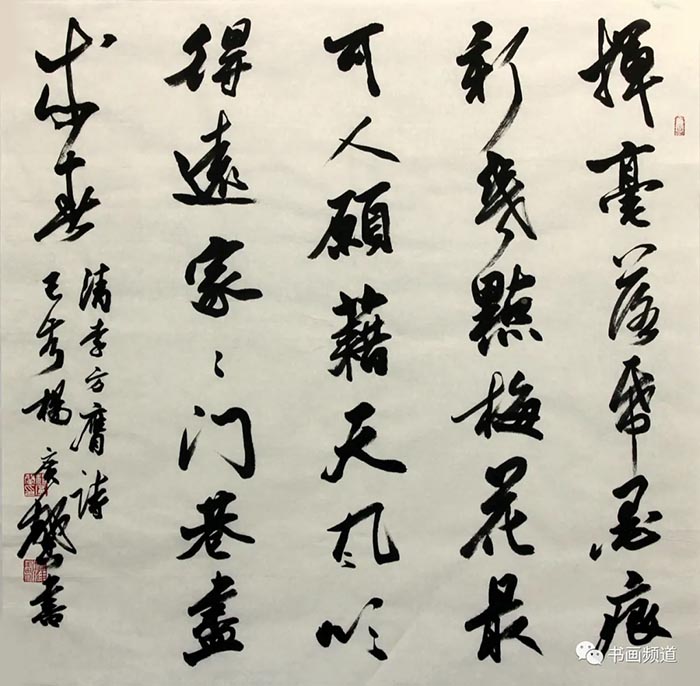 揮毫落帋墨痕
新幾點梅花最
可人願藉天風吹
得遠家〻门巷盡
成春
清李方膺詩
己亥楊廣馨書
书画频道